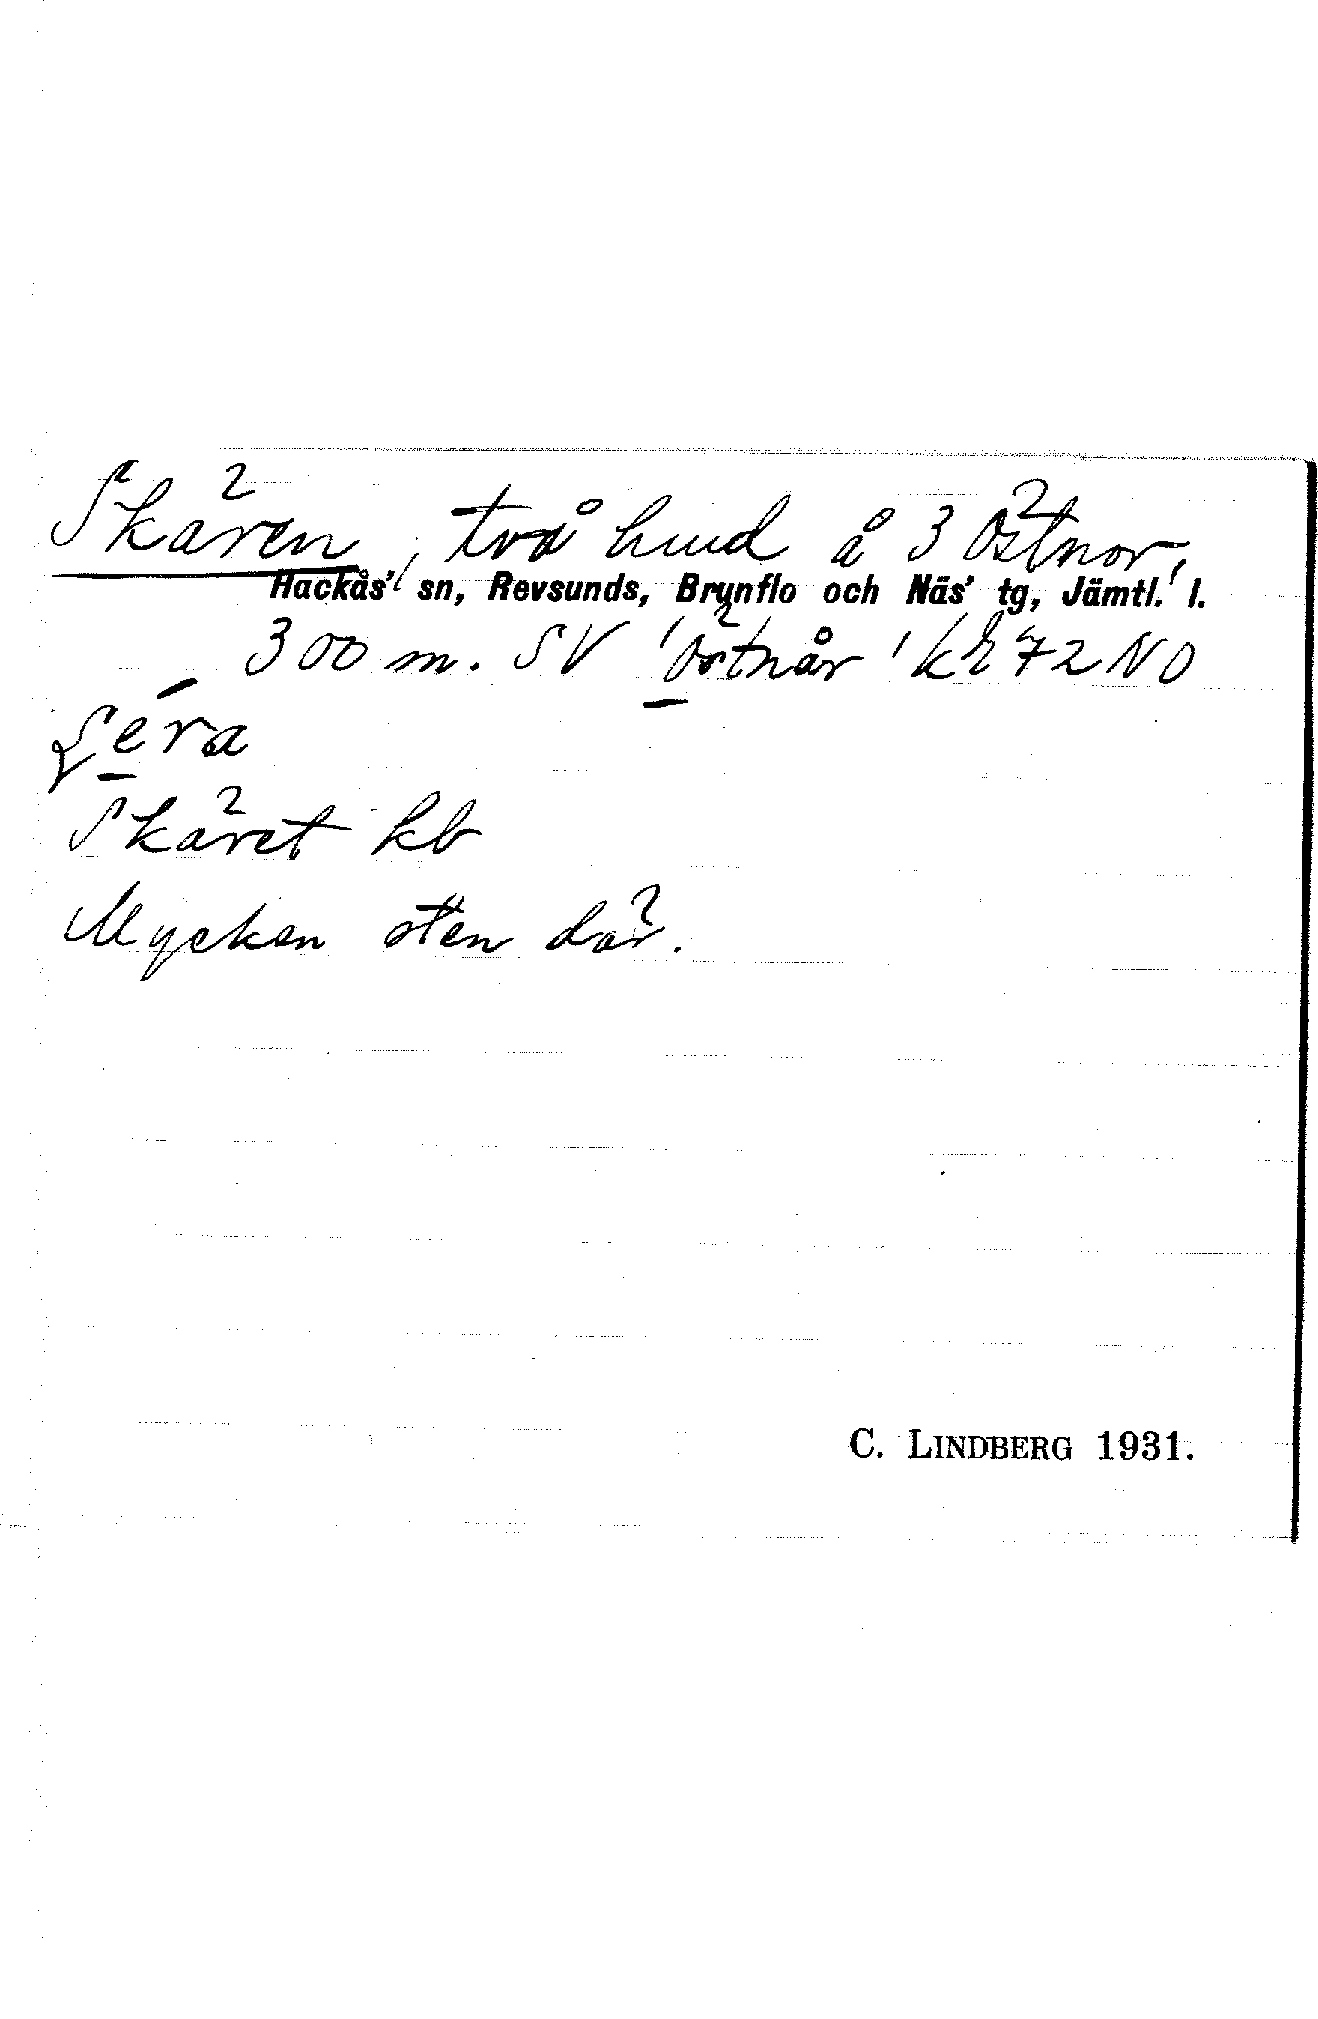 Skären, två hud å 3 Östnor,
Hackås' sn, Revsunds, Brunflo och Näs' tg, Jämtl. l.
300 m. SV 'Östnår' kbl 72 NO
Skäret kb
Mycken sten där.
C. LINDBERG 1931.